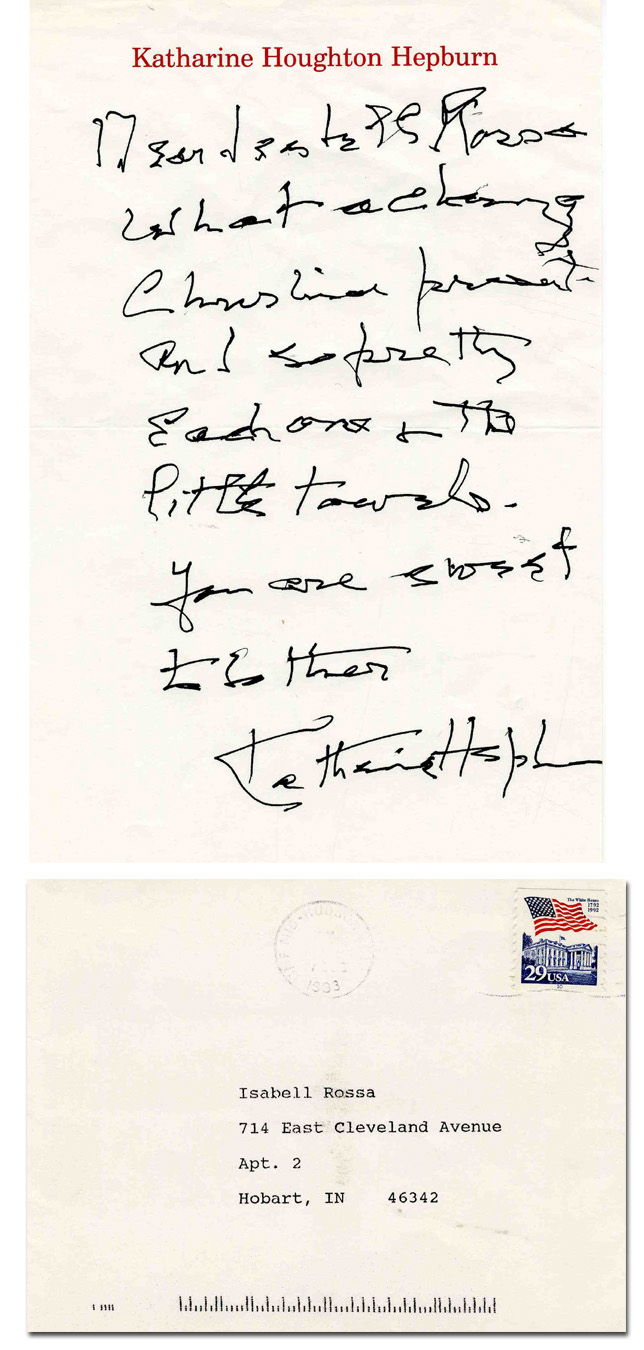 Katharine Houghton Hepburn
Dear Isabell Rossa
What a charming
Christmas present
And so pretty
Each one & the
little towels.
You are sweet
Katharine Hepburn
1993
The White House
1792
1992
29 USA
Isabell Rossa
714 East Cleveland Avenue
Apt. 2
Hobart, IN 46342